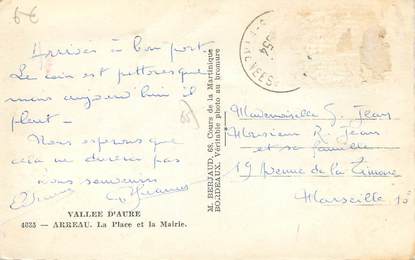 6€
Arrivés à bon port
Le coin est pittoresque
mais aujourd'hui il
pleut -
Nous espérons que
cela ne durera pas
Bons souvenirs
VALLEE D'AURE
4635 - ARREAU. La Place et la Mairie.
M. BERJAUD, 68, Cours de la Martinique
BORDEAUX. Véritable photo au bromure
65
Mademoiselle G. Jean
Monsieur R. Jean
et sa famille
19 Avenue de la Timone
Marseille 10